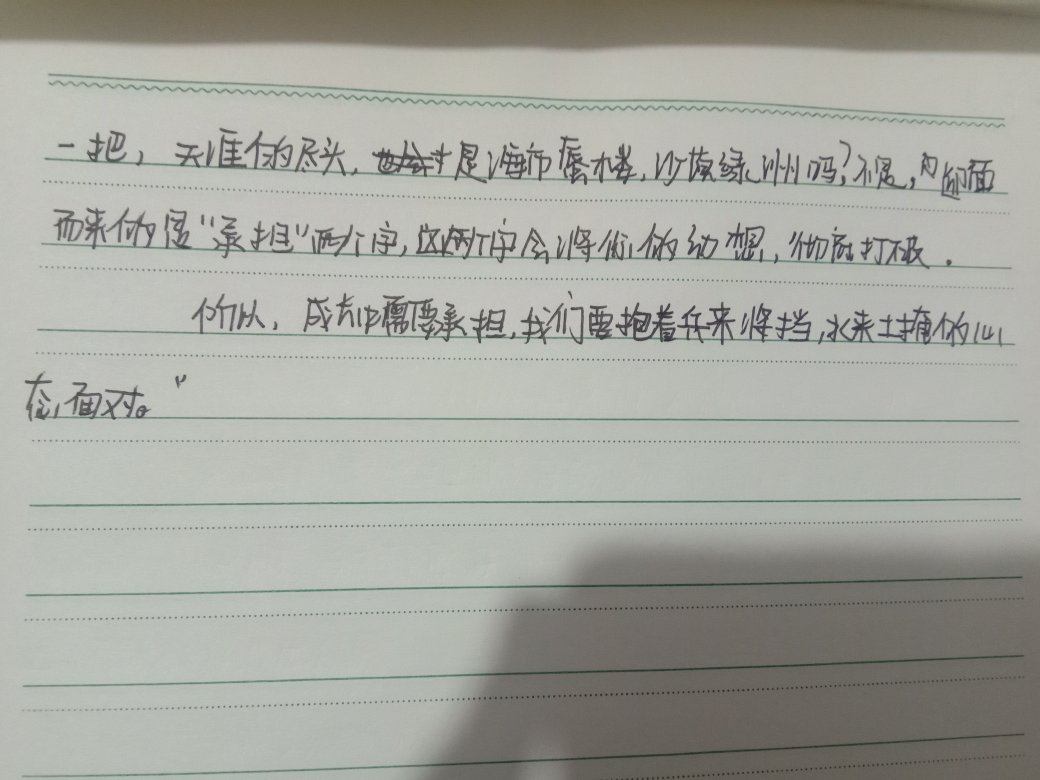 一把，天涯的尽头，是海市蜃楼，沙漠绿洲吗？不是，迎面
而来的是“承担”两个字，这两个字会将你的幻想，彻底打破．
所以，成长中需要承担，我们要抱着兵来将挡，水来土掩的心
态，面对。”